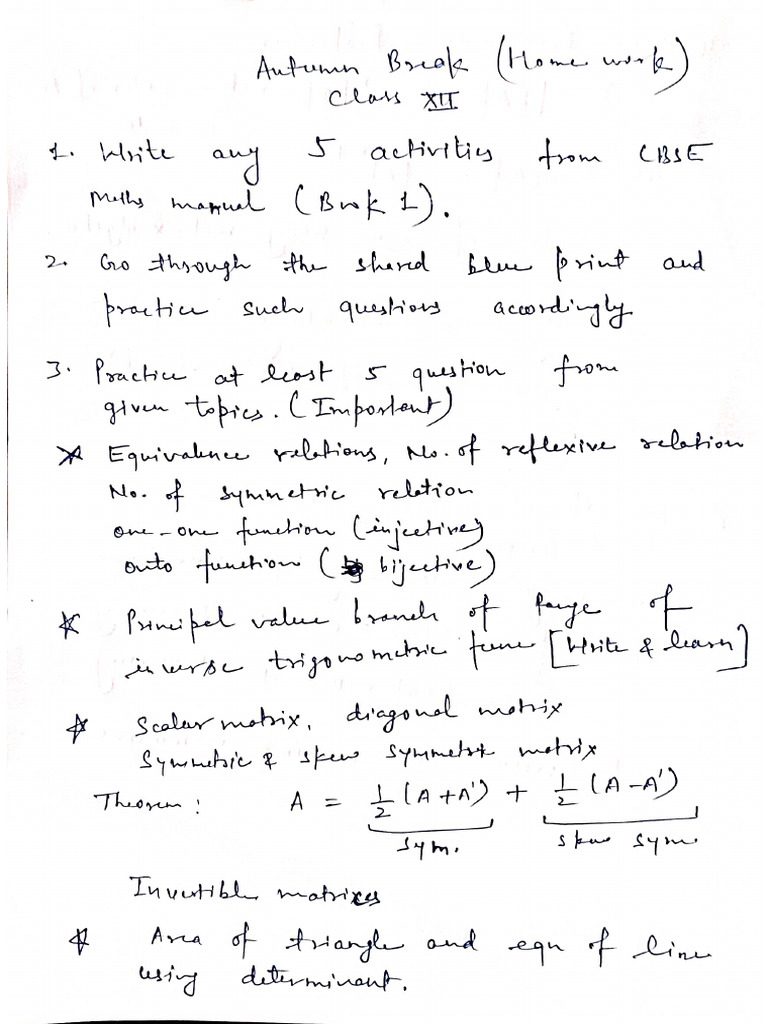 Autumn Break (Home work)
Class XII
1. Write any 5 activities from CBSE
Maths manual (Book 1).
2. Go through the shared blue print and
practice such questions accordingly
3. Practice at least 5 question from
given topics. (Important)
* Equivalence relations, No. of reflexive relation
No. of symmetric relation
one-one function (injective)
onto function (bijective)
* Principal value branch of range of
inverse trigonometric func [Write & learn]
* Scalar matrix, diagonal matrix
Symmetric & skew symmetric matrix
Theorem : A = 1/2 (A+A') + 1/2 (A-A')
sym. skew sym.
Invertible matrixes
* Area of triangle and eqn of line
using determinant.